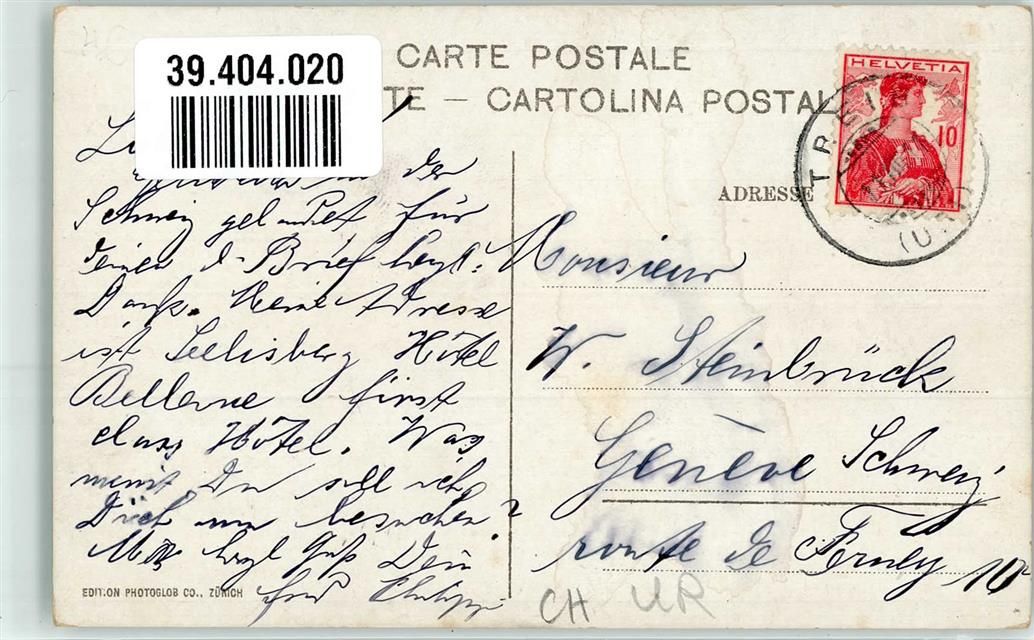 39.404.020
CARTE POSTALE
TE – CARTOLINA POSTAL
HELVETIA
10
TREIB
(URI)
ADRESSE
in der
Schweiz gelandet für
deinen l. Brief herzl.
Dank. Meine Adresse
ist Seelisberg Hôtel
Bellevue first
class Hôtel. Was
meinst Du soll ich
Dich mal besuchen?
Mit herzl Gruß Dein
frd Philipp
Monsieur
W. Steinbrück
Genève Schweiz
route de Ferney
EDITION PHOTOGLOB CO., ZÜRICH
CH UR